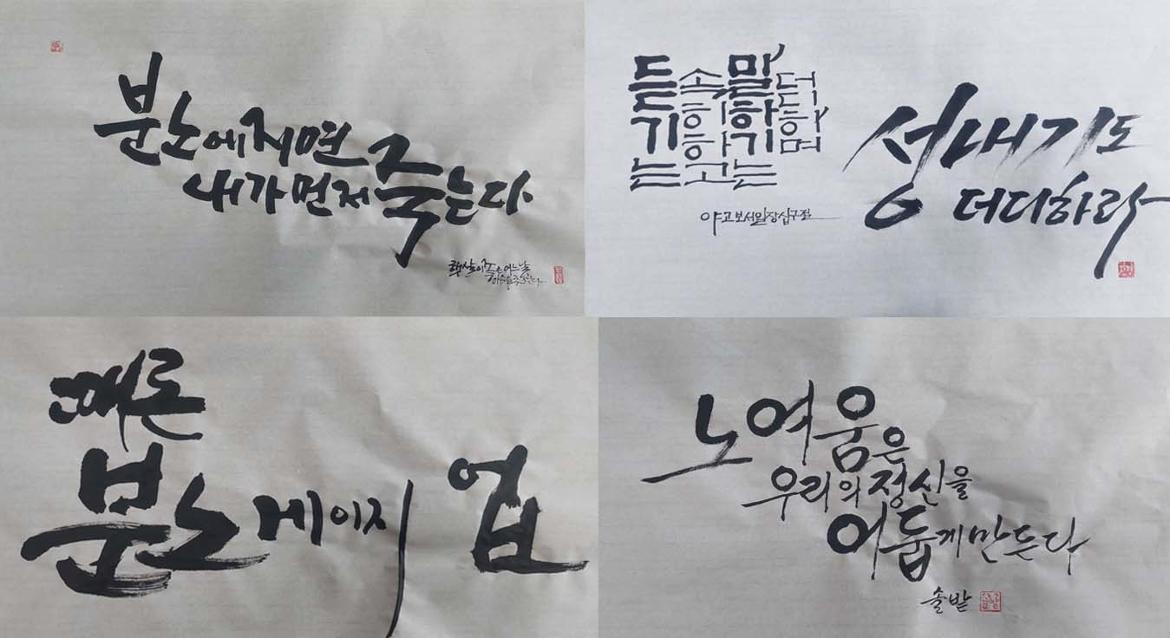 분노에 지면
내가 먼저 죽는다
햇살이 좋은 어느 날
듣기는
속히하고
말하기는
더디하며
야고보서 일장 십구절
성내기도
더디하라
때론
분노 게이지 업
노여움은
우리의 정신을
어둡게 만든다
솔밭